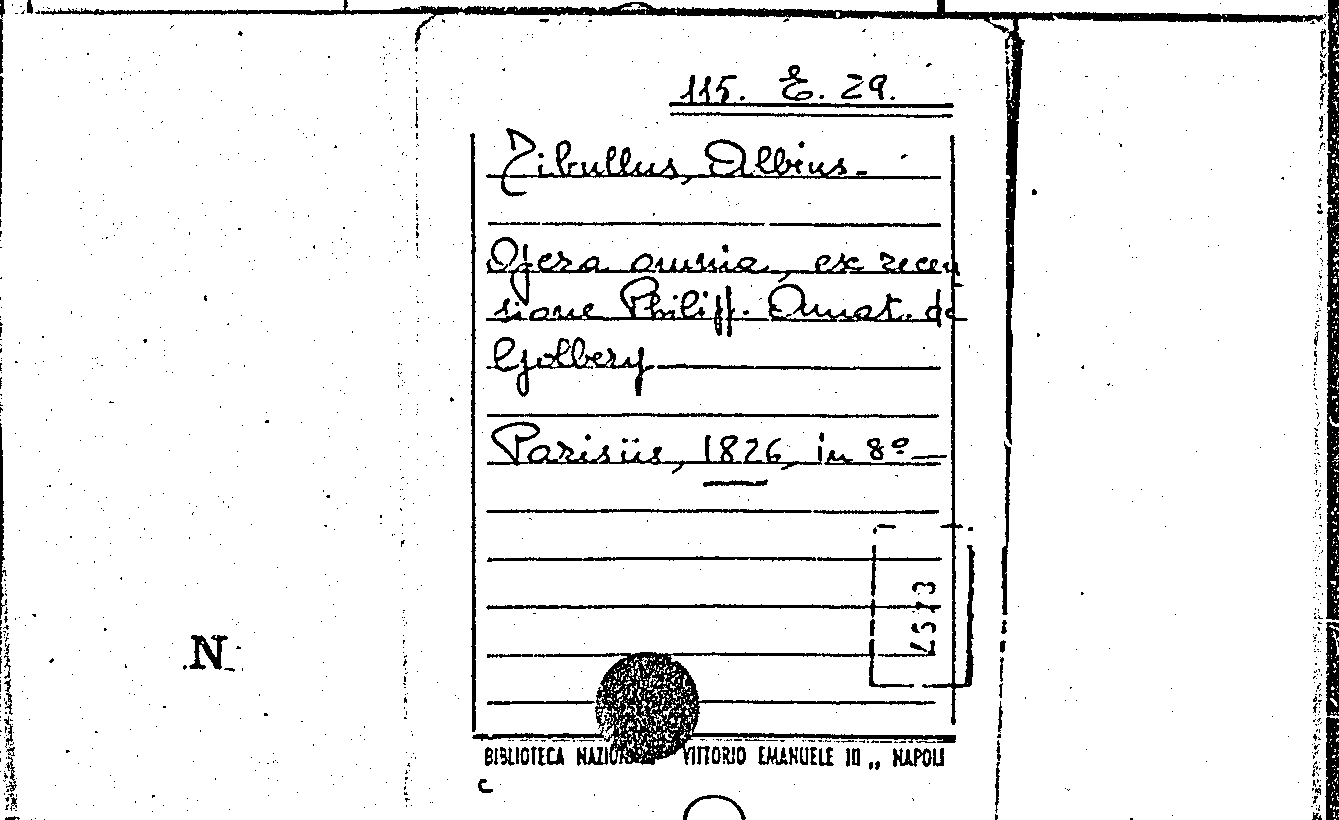 115. E. 29.
Tibullus, Albius.
Opera omnia, ex recen
sione Philipp. Amat. de
Golbery
Parisiis, 1826, in 8º
N
BIBLIOTECA VITTORIO EMANUELE III „ NAPOLI
c